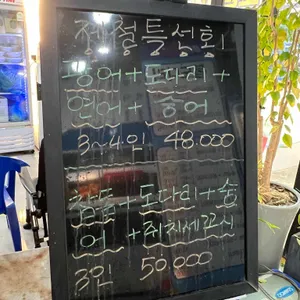 제철특선회
광어+도다리+
연어+숭어
3~4인 48.000
참돔+도다리+숭
어+쥐치세꼬시
3인 50.000